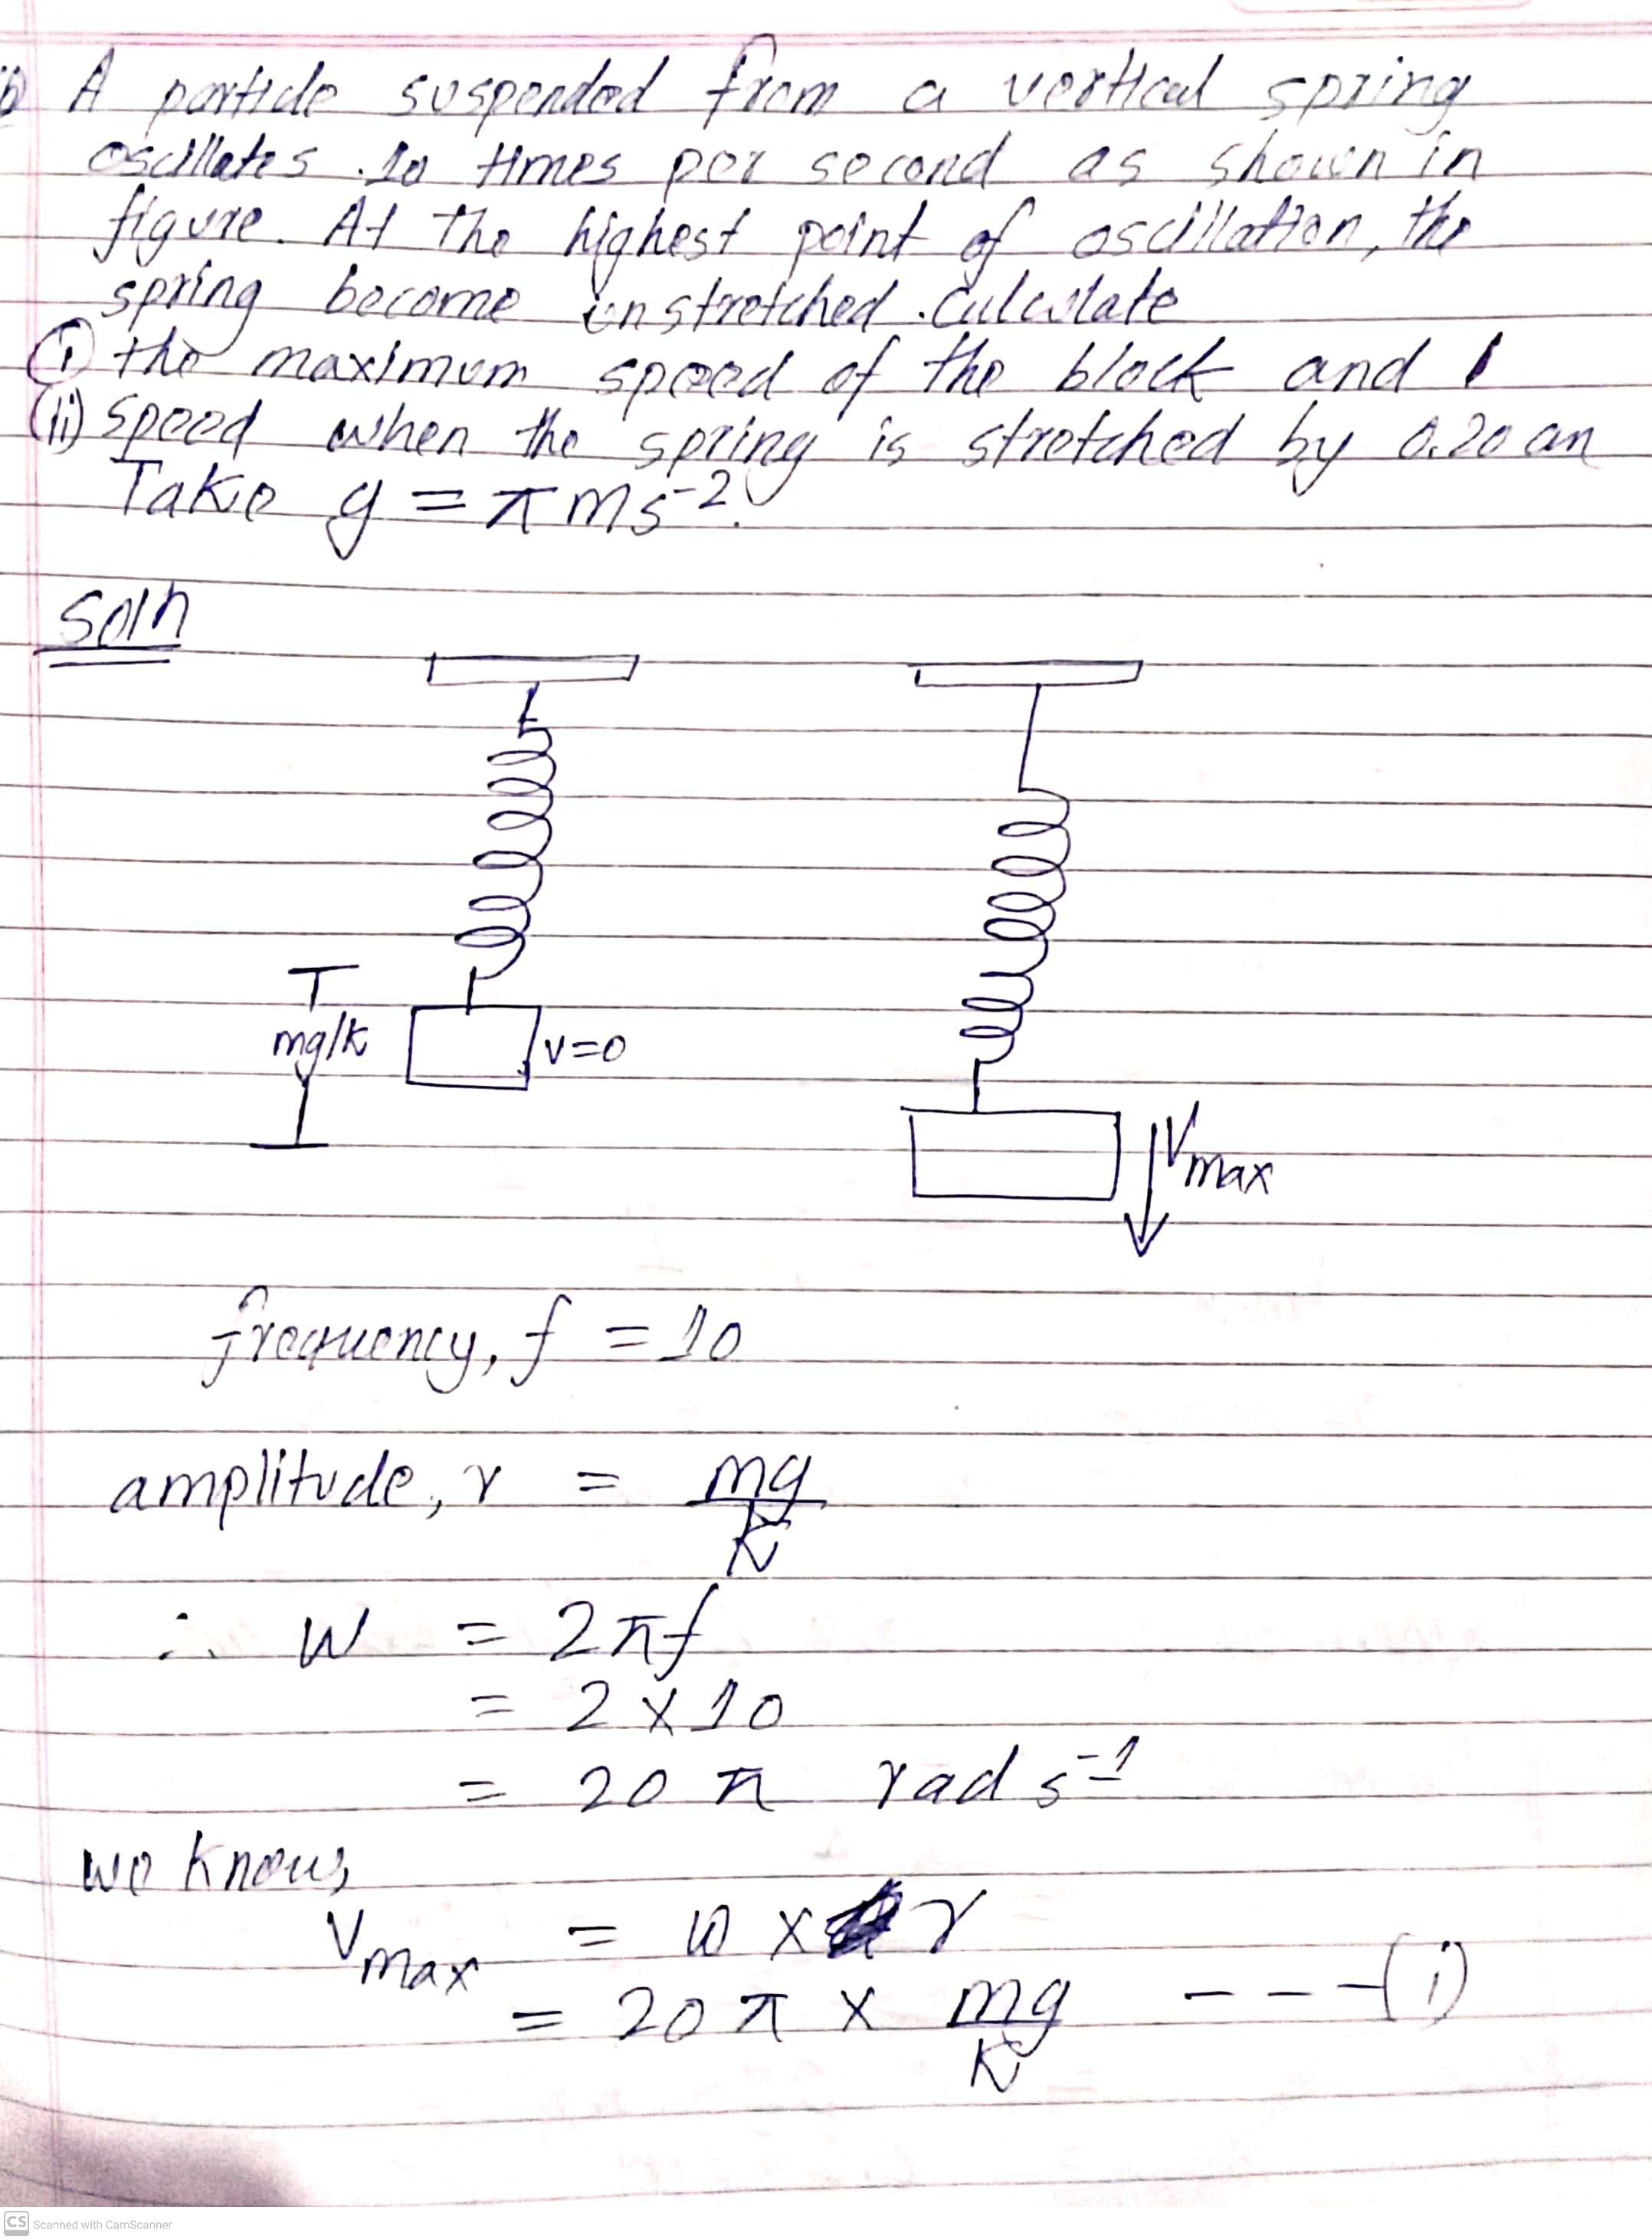 A particle suspended from a vertical spring
oscillates 10 times per second as shown in
figure. At the highest point of oscillation, the
spring become unstretched. Calculate
(i) the maximum speed of the block and
(ii) speed when the spring is stretched by 0.20 cm
Take g = π ms⁻².
soln
mg/k
v=0
Vmax
frequency, f = 10
amplitude, r = mg/K
∴ W = 2πf
= 2 × 10
= 20 π rad s⁻¹
we know,
Vmax = ω × r
= 20 π × mg/K ---(i)
CS Scanned with CamScanner